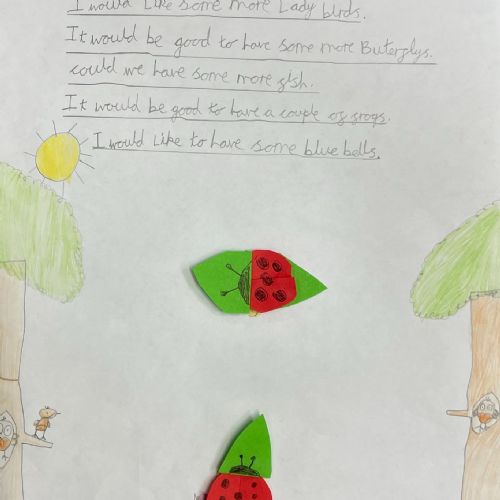 I would like some more Lady birds.
It would be good to have some more Buterflys.
could we have some more fish.
It would be good to have a couple of frogs.
I would like to have some blue bells.